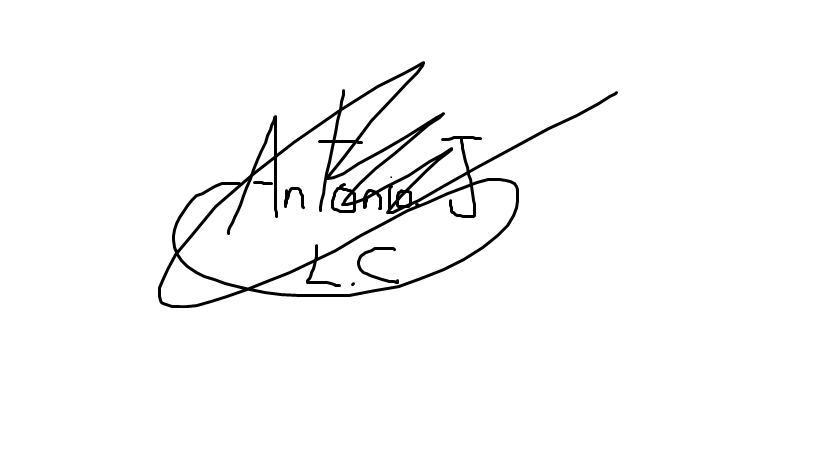 Antonio. J
L.C